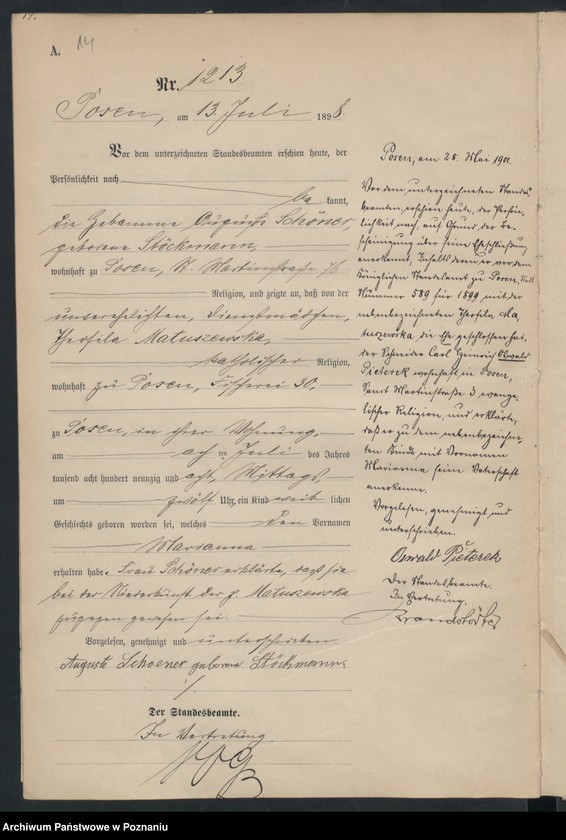 A.
14
Nr. 1213
Posen, am 13. Juli 1898.
Vor dem unterzeichneten Standesbeamten erschien heute, der
Persönlichkeit nach
be kannt,
die Hebamme Auguste Schöner,
geborene Stöckmann,
wohnhaft zu Posen, St. Martinstraße
Religion, und zeigte an, daß von der
unverehelichten, Dienstmädchen,
Theofila Matuszewska,
katholischer Religion,
wohnhaft zu Posen, Fischerei 30,
zu Posen, in ihrer Wohnung,
am acht ten Juli des Jahres
tausend acht hundert neunzig und acht, Mittags
um zwölf Uhr, ein Kind weib lichen
Geschlechts geboren worden sei, welches den Vornamen
Marianna
erhalten habe. Frau Schöner erklärte, daß sie
bei der Niederkunft der p. Matuszewska
zugegen gewesen sei.
Vorgelesen, genehmigt und unterschrieben.
Auguste Schoener geborene Stöckmann.
Der Standesbeamte.
In Vertretung.
Posen, am 28. Mai 1901.
Vor dem unterzeichneten Standes-
beamten erschien heute, der Persön-
lichkeit nach, auf Grund der Be-
scheinigung über seine Eheschließung
anerkannt, Inhalts deren er vor dem
Königlichen Standesamt zu Posen,
Nummer 589 für 1899 mit der
nebenbezeichneten Theofila Ma-
tuszewska, die Ehe geschlossen hat,
der Schneider Carl Heinrich Oswald
Pieterek wohnhaft in Posen,
Sanct Martinstraße 3 evange-
lischer Religion, und erklärte,
daß er zu dem nebenbezeichne-
ten Kinde mit Vornamen
Marianna seine Vaterschaft
anerkenne.
Vorgelesen, genehmigt und
unterschrieben.
Oswald Pieterek
Der Standesbeamte.
In Vertretung.
Archiwum Państwowe w Poznaniu